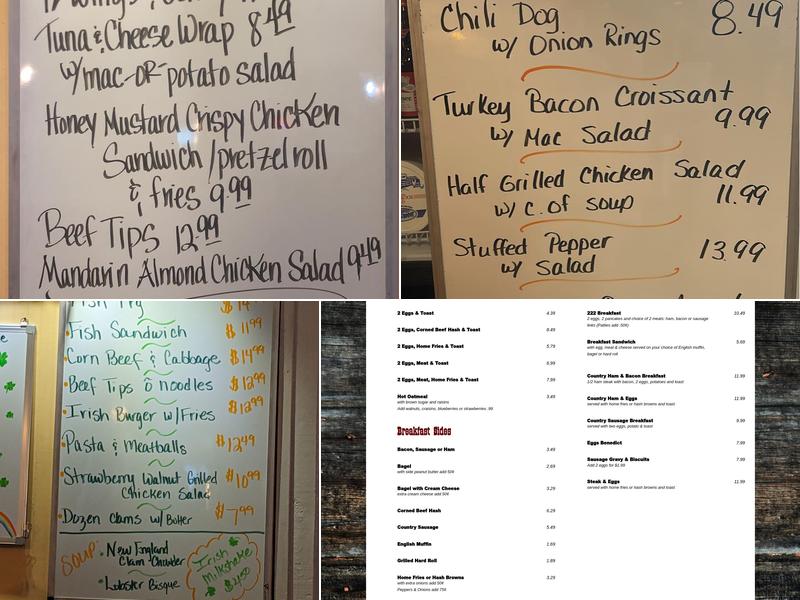 Tuna & Cheese Wrap 8.49
w/mac-OR-potato salad
Honey Mustard Crispy Chicken
Sandwich /pretzel roll
& fries 9.99
Beef Tips 12.99
Mandarin Almond Chicken Salad 9.49
Chili Dog 8.49
w/ Onion Rings
Turkey Bacon Croissant
w/ Mac Salad 9.99
Half Grilled Chicken Salad
w/ C. of soup 11.99
Stuffed Pepper
w/ Salad 13.99
Fish Sandwich $11.99
Corn Beef & Cabbage $14.99
Beef Tips o noodles $12.99
Irish Burger w/Fries $12.99
Pasta & Meatballs $12.49
Strawberry Walnut Grilled $10.99
Chicken Salad
Dozen Clams w/ Butter $7.99
SOUP
New England
Clam Chowder
Lobster Bisque
Irish
Milkshake
2 Eggs & Toast 4.39
2 Eggs, Corned Beef Hash & Toast 8.49
2 Eggs, Home Fries & Toast 5.79
2 Eggs, Meat & Toast 6.99
2 Eggs, Meat, Home Fries & Toast 7.99
Hot Oatmeal 3.49
with brown sugar and raisins
Add walnuts, craisins, blueberries or strawberries .99
Breakfast Sides
Bacon, Sausage or Ham 3.49
Bagel 2.69
with side peanut butter add 50¢
Bagel with Cream Cheese 3.29
extra cream cheese add 50¢
Corned Beef Hash 6.29
Country Sausage 5.49
English Muffin 1.69
Grilled Hard Roll 1.89
Home Fries or Hash Browns 3.29
with extra onions add 50¢
Peppers & Onions add 75¢
222 Breakfast 10.49
2 eggs, 2 pancakes and choice of 2 meats: ham, bacon or sausage
links (Patties add .50¢)
Breakfast Sandwich 5.69
with egg, meat & cheese served on your choice of English muffin,
bagel or hard roll
Country Ham & Bacon Breakfast 11.99
1/2 ham steak with bacon, 2 eggs, potatoes and toast
Country Ham & Eggs 11.99
served with home fries or hash browns and toast
Country Sausage Breakfast 9.99
served with two eggs, potato & toast
Eggs Benedict 7.99
Sausage Gravy & Biscuits 7.99
Add 2 eggs for $1.99
Steak & Eggs 11.99
served with home fries or hash browns and toast